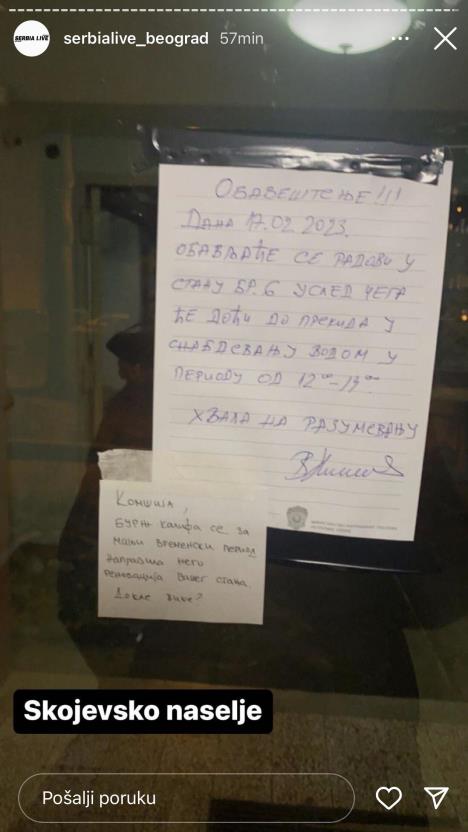 SERBIA LIVE
serbialive_beograd 57min
ОБАВЕШТЕЊЕ!!!
ДАНА 17.02 2023.
ОБАВЉАЋЕ СЕ РАДОВИ У
СТАНУ БР. 6 УСЛЕД ЧЕГА
ЋЕ ДОЋИ ДО ПРЕКИДА У
СНАБДЕВАЊУ ВОДОМ У
ПЕРИОДУ ОД 12ºº-13ºº
ХВАЛА НА РАЗУМЕВАЊУ
КОМШИЈА,
БУРЏ КАЛИФА СЕ ЗА
МАЊИ ВРЕМЕНСКИ ПЕРИОД
НАПРАВИЛА НЕГО
РЕНОВАЦИЈА ВАШЕГ СТАНА.
ДОКЛЕ ВИШЕ?
Skojevsko naselje
Pošalji poruku